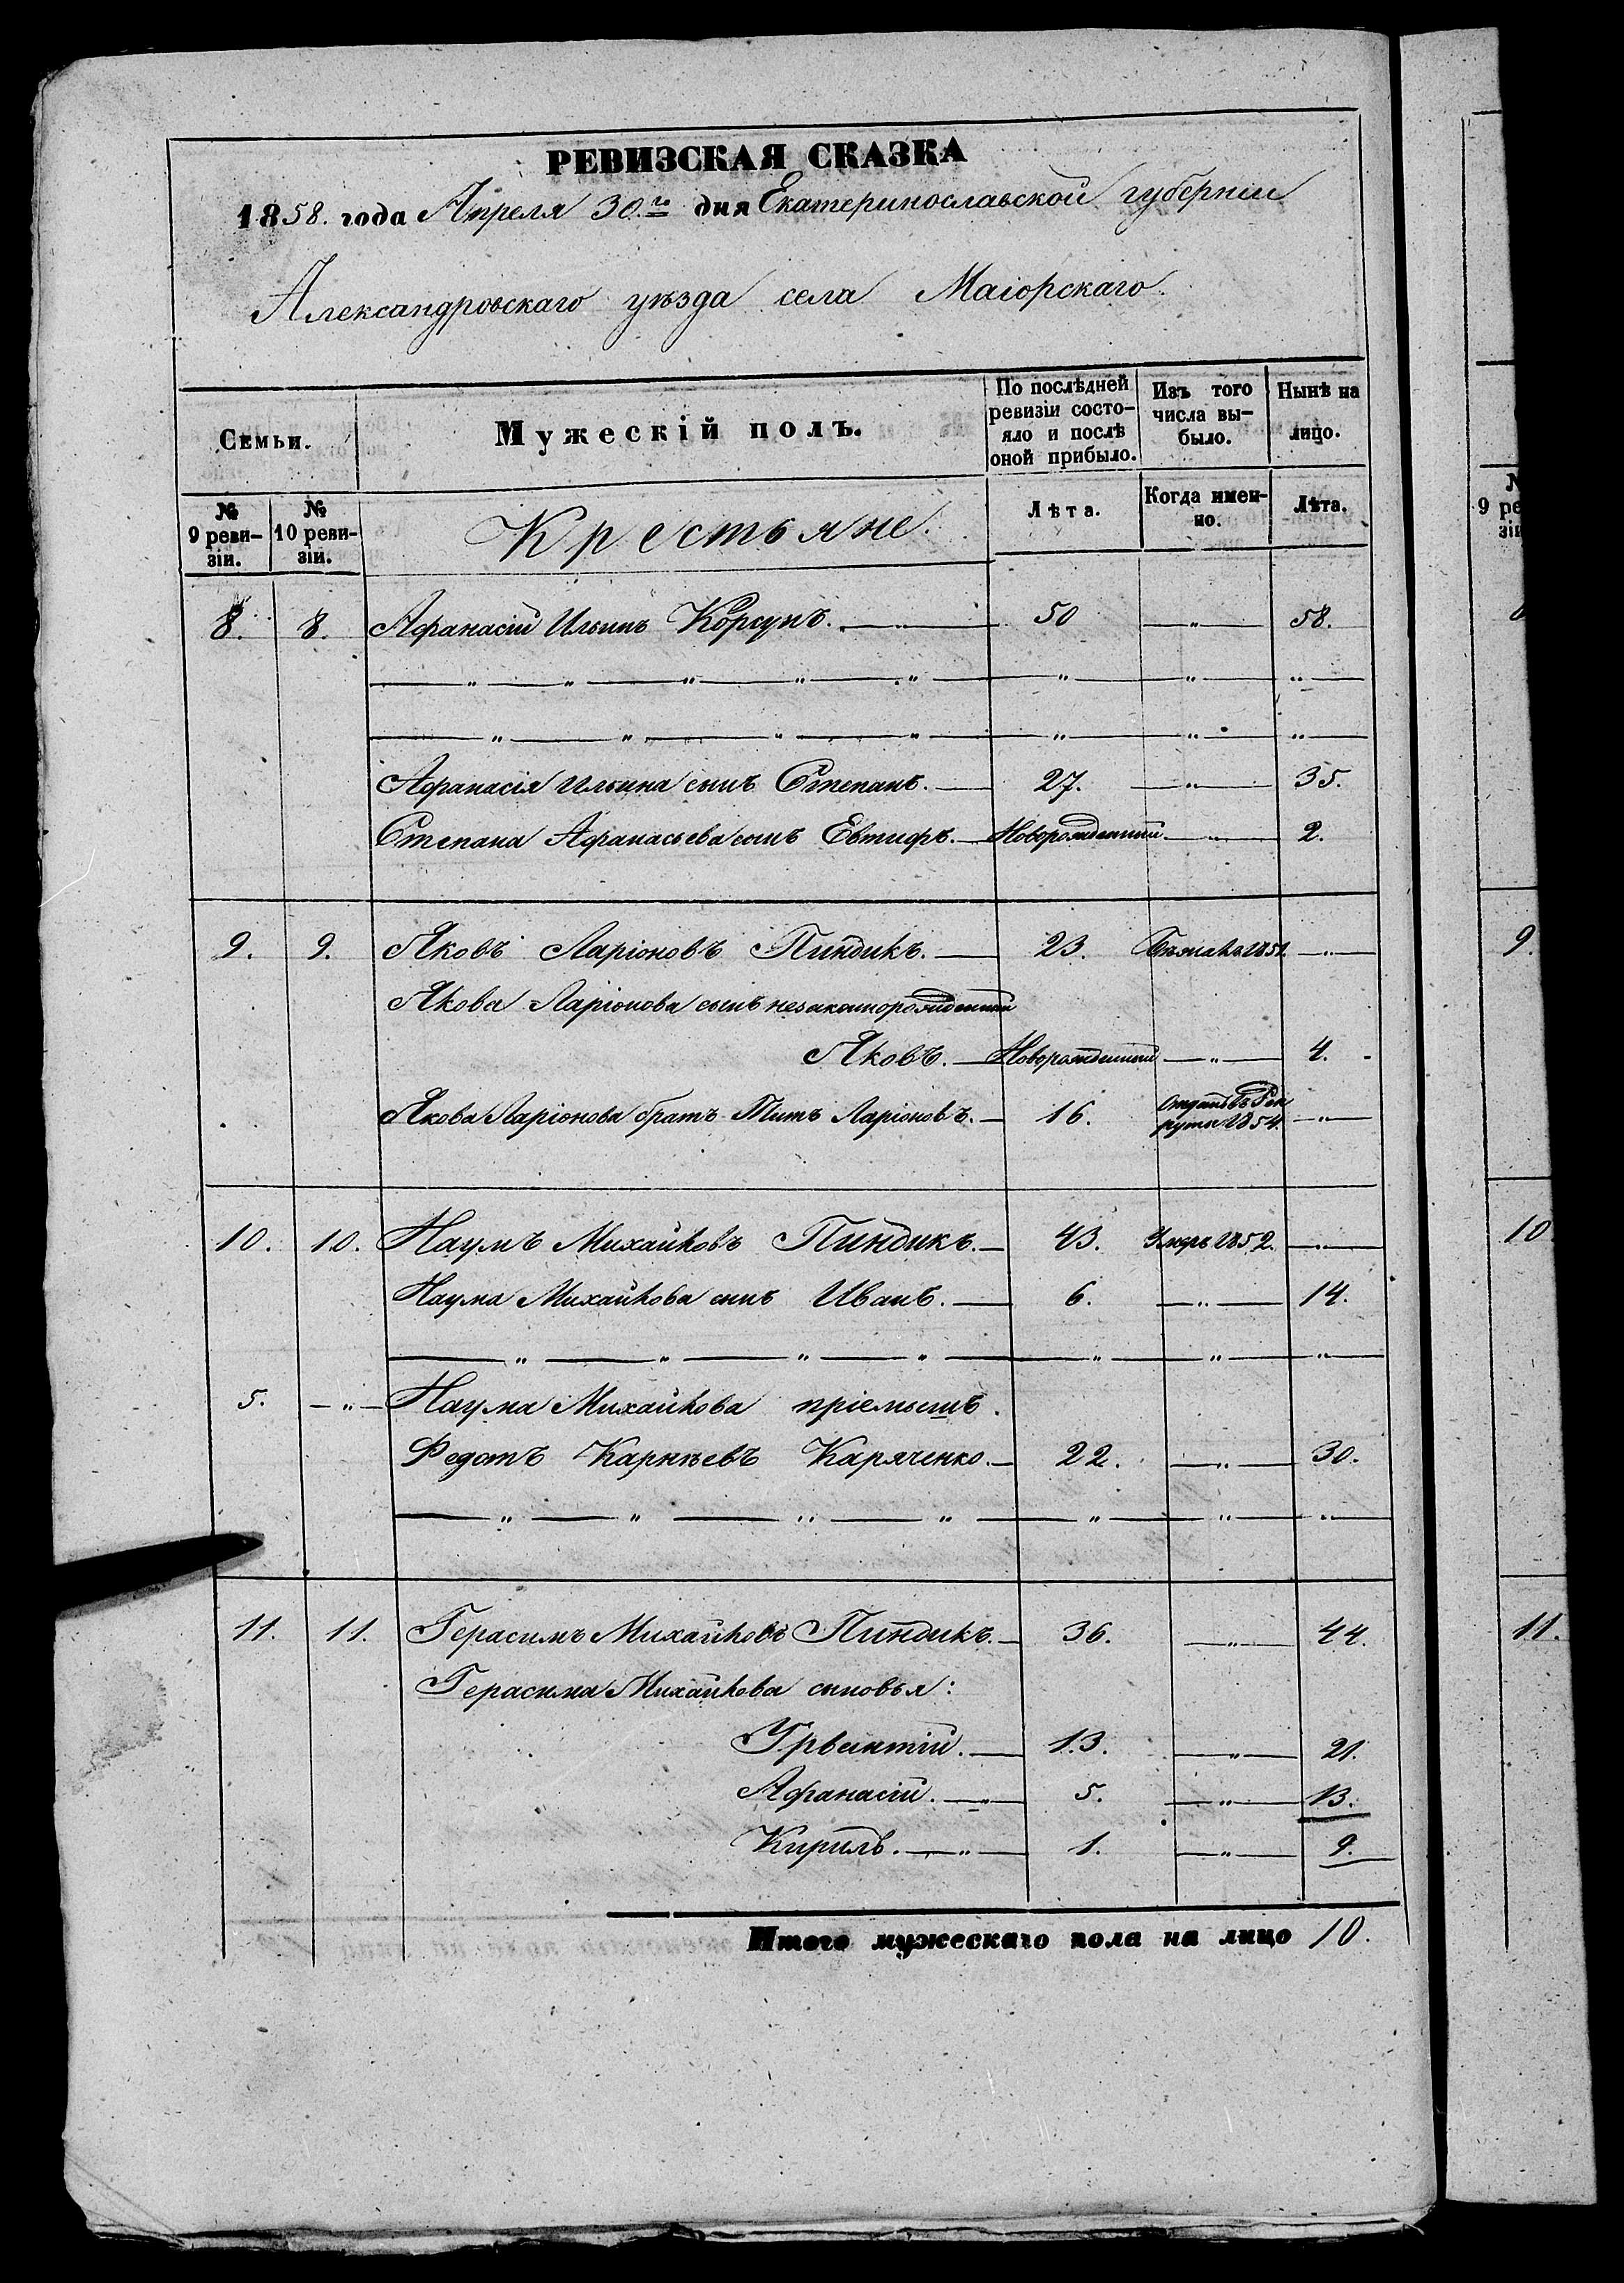 РЕВИЗСКАЯ СКАЗКА
1858. года Апреля 30.го дня Екатеринославской губерніи
Александровскаго уѣзда села Маіорскаго.
Семьи. Мужескій полъ. По послѣдней ревизіи состояло и послѣ оной прибыло. Изъ того числа выбыло. Нынѣ на лицо.
№ 9 ревизіи. № 10 ревизіи. Крестьяне. Лѣта. Когда именно. Лѣта.
8. 8. Афанасій Ильинъ Корсунъ. — 50 — „ — 58.
— „ — „ — „ — „ — „ — „ — „ — „ —
— „ — „ — „ — „ — „ — „ — „
Афанасія Ильина сынъ Степанъ. — 27. — „ — 35.
Степана Афанасьева сынъ Евтифъ. — Новорожденный — „ — 2.
9. 9. Яковъ Ларіоновъ Пиндикъ. — 23. Бѣжалъ 1851. — „ —
Якова Ларіонова сынъ незаконорожденный
Яковъ. — Новорожденный — „ — 4.
Якова Ларіонова братъ Титъ Ларіоновъ. — 16. Отданъ въ Рекруты 1854. — „ —
10. 10. Наумъ Михайловъ Пиндикъ. — 43. Умеръ 1852. — „ —
Наума Михайлова сынъ Иванъ. — 6. — „ — 14.
— „ — „ — „ — „ — „ — „ — „ —
5. — „ — Наума Михайлова пріемышъ.
Федотъ Карнѣевъ Каряченко. — 22. — „ — 30.
— „ — „ — „ — „ — „ — „ — „ —
11. 11. Герасимъ Михайловъ Пиндикъ. — 36. — „ — 44.
Герасима Михайлова сыновья:
— 13. — „ — 21.
Афанасій. — „ — 5. — „ — 13.
Кирилъ. — „ — 1. — „ — 9.
Итого мужескаго пола на лицо 10.
№
9 ре
зіи
9.
10
11.